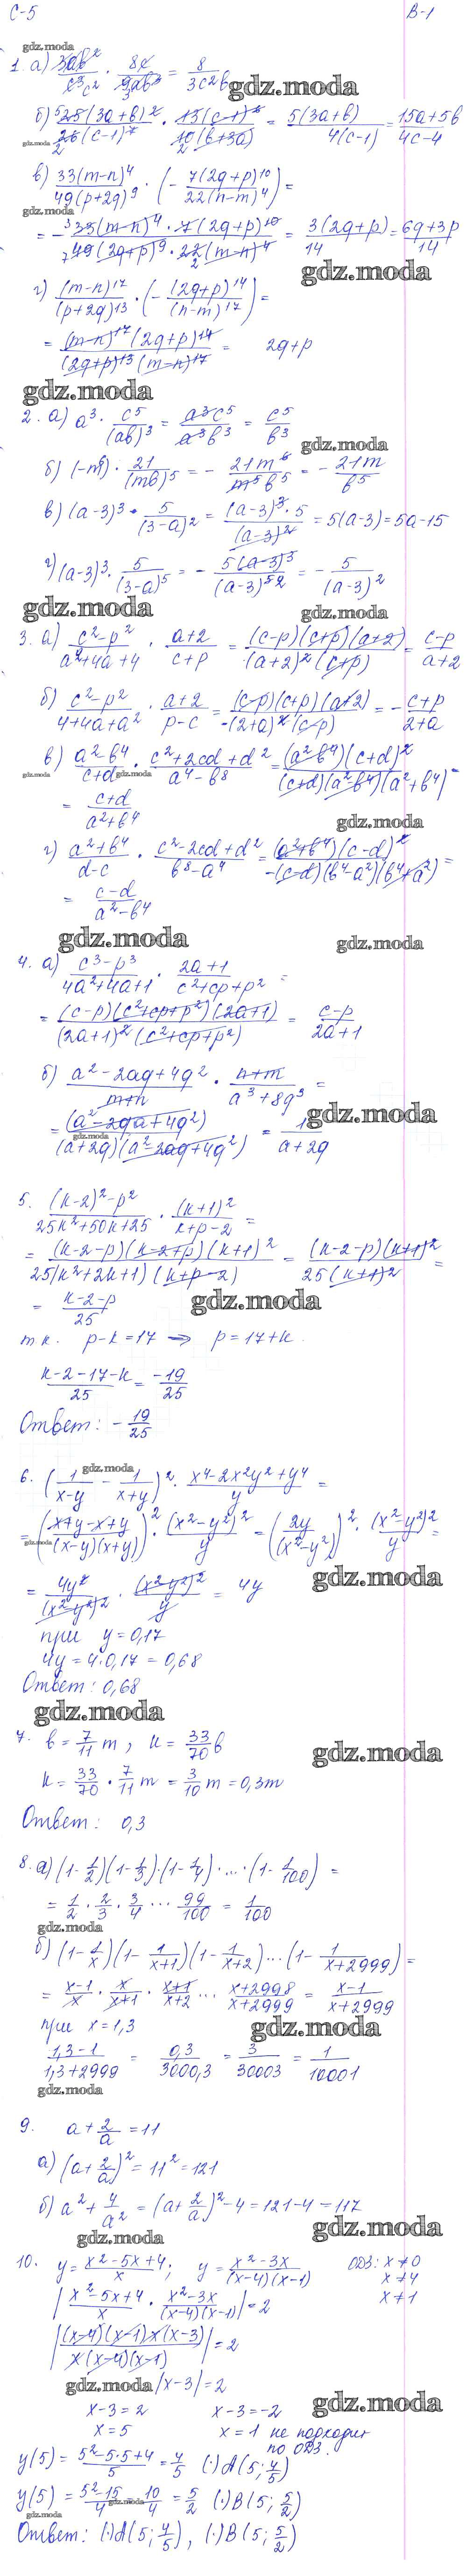 С-5 В-1
1. а) 3ab²/c³c² · 8c/9ab³ = 8/3c²b
б) 25(3a+b)²/26(c-1)⁷ · 13(c-1)⁶/10(b+3a) = 5(3a+b)/4(c-1) = 15a+5b/4c-4
в) 33(m-n)⁴/49(p+2q)⁹ · (- 7(2q+p)¹⁰/22(n-m)⁴) =
= - 33(m-n)⁴ · 7(2q+p)¹⁰/49(2q+p)⁹ · 22(m-n)⁴ = 3(2q+p)/14 = 6q+3p/14
г) (m-n)¹⁷/(p+2q)¹³ · (- (2q+p)¹⁴/(n-m)¹⁷) =
= (m-n)¹⁷(2q+p)¹⁴/(2q+p)¹³(m-n)¹⁷ = 2q+p
2. а) a³ · c⁵/(ab)³ = a³c⁵/a³b³ = c⁵/b³
б) (-m⁶) · 21/(mb)⁵ = - 21m⁶/m⁵b⁵ = - 21m/b⁵
в) (a-3)³ · 5/(3-a)² = (a-3)³ · 5/(a-3)² = 5(a-3) = 5a-15
г) (a-3)³ · 5/(3-a)⁵ = - 5(a-3)³/(a-3)⁵² = - 5/(a-3)²
3. а) c²-p²/a²+4a+4 · a+2/c+p = (c-p)(c+p)(a+2)/(a+2)²(c+p) = c-p/a+2
б) c²-p²/4+4a+a² · a+2/p-c = (c-p)(c+p)(a+2)/-(2+a)²(c-p) = - c+p/2+a
в) a²-b⁴/c+d · c²+2cd+d²/a⁴-b⁸ = (a²-b⁴)(c+d)²/(c+d)(a²-b⁴)(a²+b⁴) =
= c+d/a²+b⁴
г) a²+b⁴/d-c · c²-2cd+d²/b⁸-a⁴ = (a²+b⁴)(c-d)²/-(c-d)(b⁴-a²)(b⁴+a²) =
= c-d/a²-b⁴
4. а) c³-p³/4a²+4a+1 · 2a+1/c²+cp+p² =
= (c-p)(c²+cp+p²)(2a+1)/(2a+1)²(c²+cp+p²) = c-p/2a+1
б) a²-2aq+4q²/m+n · n+m/a³+8q³ =
= (a²-2qa+4q²)/(a+2q)(a²-2aq+4q²) = 1/a+2q
5. (k-2)²-p²/25k²+50k+25 · (k+1)²/k+p-2 =
= (k-2-p)(k-2+p)(k+1)²/25(k²+2k+1)(k+p-2) = (k-2-p)(k+1)²/25(k+1)² =
= k-2-p/25
т.к. p-k=17 ⇒ p=17+k.
k-2-17-k/25 = -19/25
Ответ: - 19/25
6. (1/x-y - 1/x+y)² · x⁴-2x²y²+y⁴/y =
= (x+y-x+y/(x-y)(x+y))² · (x²-y²)²/y = (2y/(x²-y²))² · (x²-y²)²/y =
= 4y²/(x²-y²)² · (x²-y²)²/y = 4y
при y=0,17
4y=4·0,17=0,68
Ответ: 0,68
7. b = 7/11 m, k = 33/70 b
k = 33/70 · 7/11 m = 3/10 m = 0,3m
Ответ: 0,3
8. а) (1-1/2)(1-1/3)·(1-1/4)·...·(1-1/100) =
= 1/2 · 2/3 · 3/4 ··· 99/100 = 1/100
б) (1-1/x)(1-1/x+1)(1-1/x+2)...(1-1/x+2999) =
= x-1/x · x/x+1 · x+1/x+2 ... x+2998/x+2999 = x-1/x+2999
при x=1,3
1,3-1/1,3+2999 = 0,3/3000,3 = 3/30003 = 1/10001
9. a+2/a=11
а) (a+2/a)²=11²=121
б) a²+4/a² = (a+2/a)²-4=121-4=117
10. y = x²-5x+4/x; y = x²-3x/(x-4)(x-1) ОДЗ: x≠0
x≠4
x≠1
|x²-5x+4/x · x²-3x/(x-4)(x-1)|=2
|(x-4)(x-1)x(x-3)/x(x-4)(x-1)|=2
|x-3|=2
x-3=2 x-3=-2
x=5 x=1 не подходит
по ОДЗ.
y(5) = 5²-5·5+4/5 = 4/5 (·)A(5; 4/5)
y(5) = 5²-15/4 = 10/4 = 5/2 (·)B(5; 5/2)
Ответ: (·)A(5; 4/5), (·)B(5; 5/2)
gdz.moda